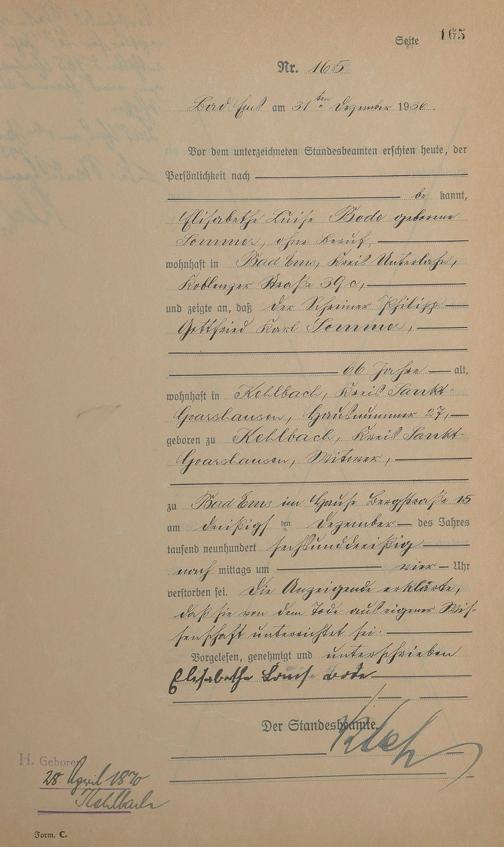 Seite 165
Nr. 165
Bad Ems am 31ten Dezember 1936.
Vor dem unterzeichneten Standesbeamten erschien heute, der
Persönlichkeit nach
bekannt,
Elisabethe Luise Bode geborene
Sommer, ohne Beruf,
wohnhaft in Bad Ems, Kreis Unterlahn,
Koblenzer Straße 39c,
und zeigte an, daß der Schreiner Philipp
Gottfried Karl Sommer,
66 Jahre alt,
wohnhaft in Kehlbach, Kreis Sankt-
Goarshausen, Hausnummer 27,
geboren zu Kehlbach, Kreis Sankt-
Goarshausen, Witwer,
zu Bad Ems im Hause Bergstraße 15
am dreißigsten Dezember des Jahres
tausend neunhundert sechsunddreißig
nachmittags um vier Uhr
verstorben sei. Die Anzeigende erklärte,
daß sie von dem Tode aus eigener Wis-
senschaft unterrichtet sei.
Vorgelesen, genehmigt und unterschrieben
Elisabethe Bode
Der Standesbeamte.
H. Geboren
28. April 1870
Kehlbach
Form. C.